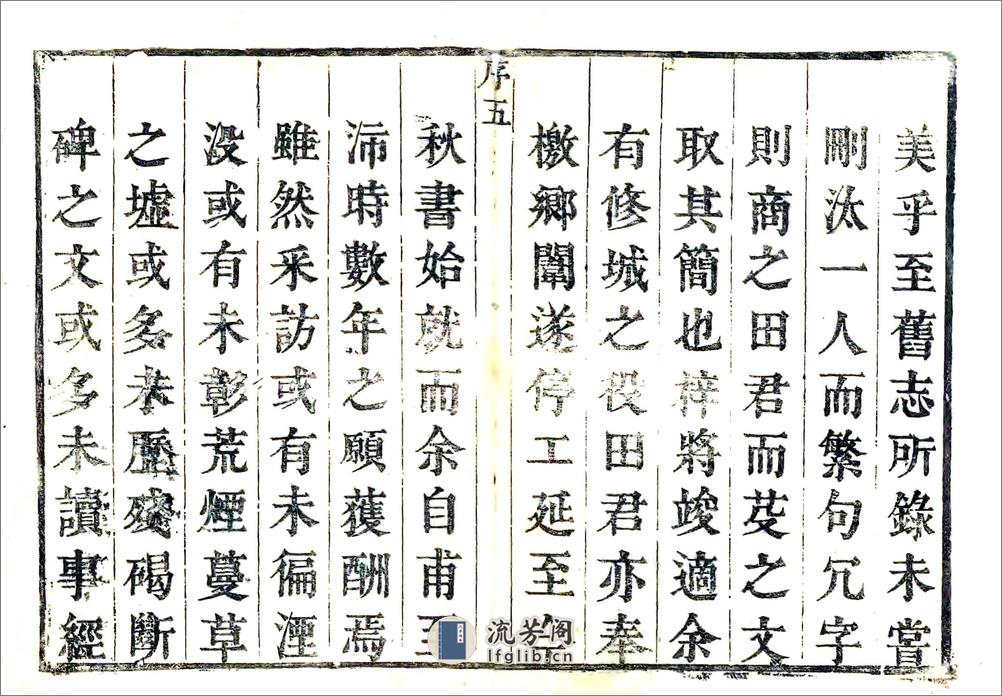 美乎至舊志所錄未嘗
刪汰一人而繁句冗字
則商之田君而芟之文
取其簡也梓將竣適余
有修城之役田君亦奉
檄鄉闈遂停工延至
序五
秋書始就而余自甫
沛時數年之願獲酬焉
雖然采訪或有未徧湮
沒或有未彰荒煙蔓草
之墟或多未歷殘碣斷
碑之文或多未讀事經
流芳阁
lfglib.cn